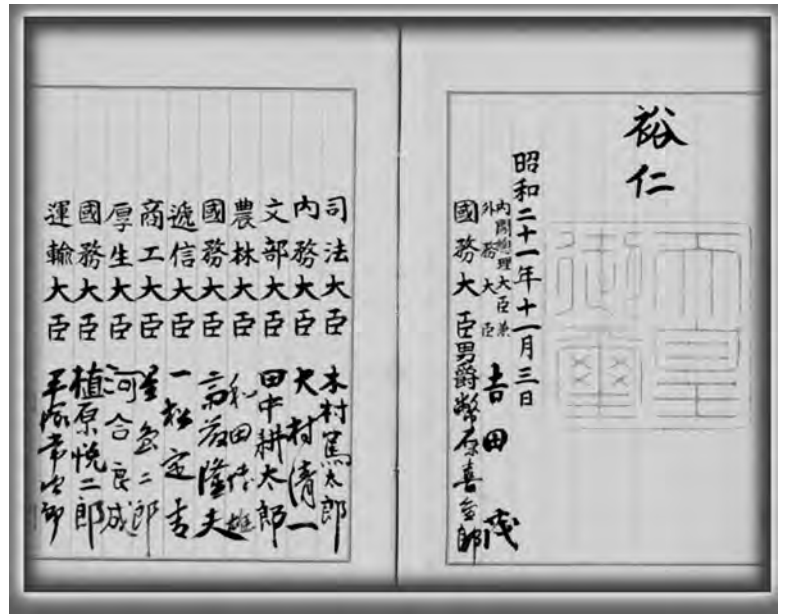 裕仁
天皇御璽
昭和二十一年十一月三日
内閣總理大臣兼
外務大臣 吉田茂
國務大臣 男爵幣原喜重郎
司法大臣 木村篤太郎
内務大臣 大村清一
文部大臣 田中耕太郎
農林大臣 和田博雄
國務大臣 斎藤隆夫
遞信大臣 一松定吉
商工大臣 星島二郎
厚生大臣 河合良成
國務大臣 植原悦二郎
運輸大臣 平塚常次郎